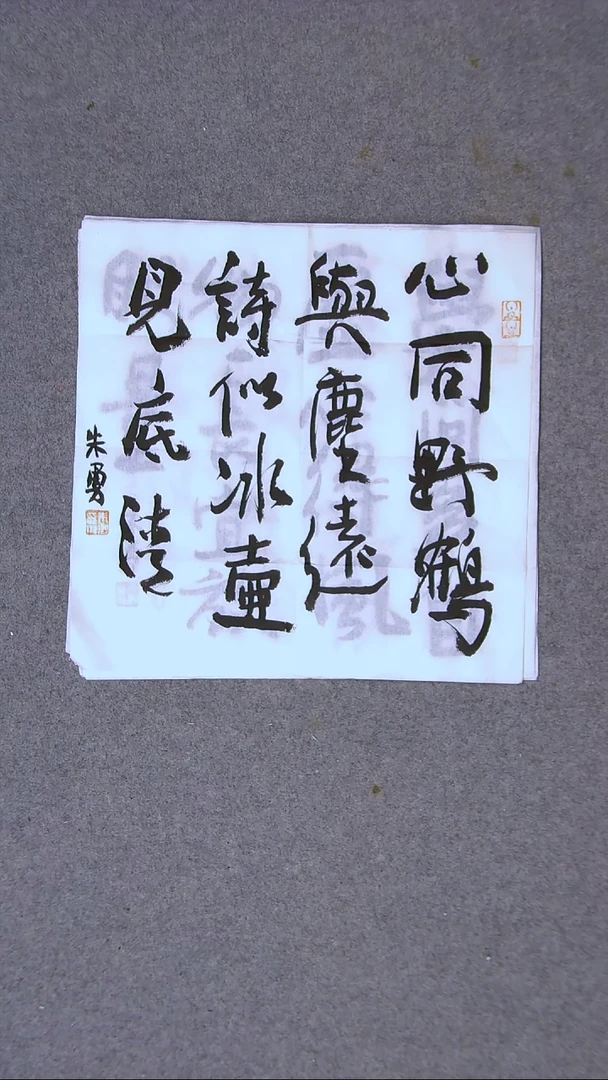 心同野鶴
與塵遠
詩似冰壺
見底清
朱勇